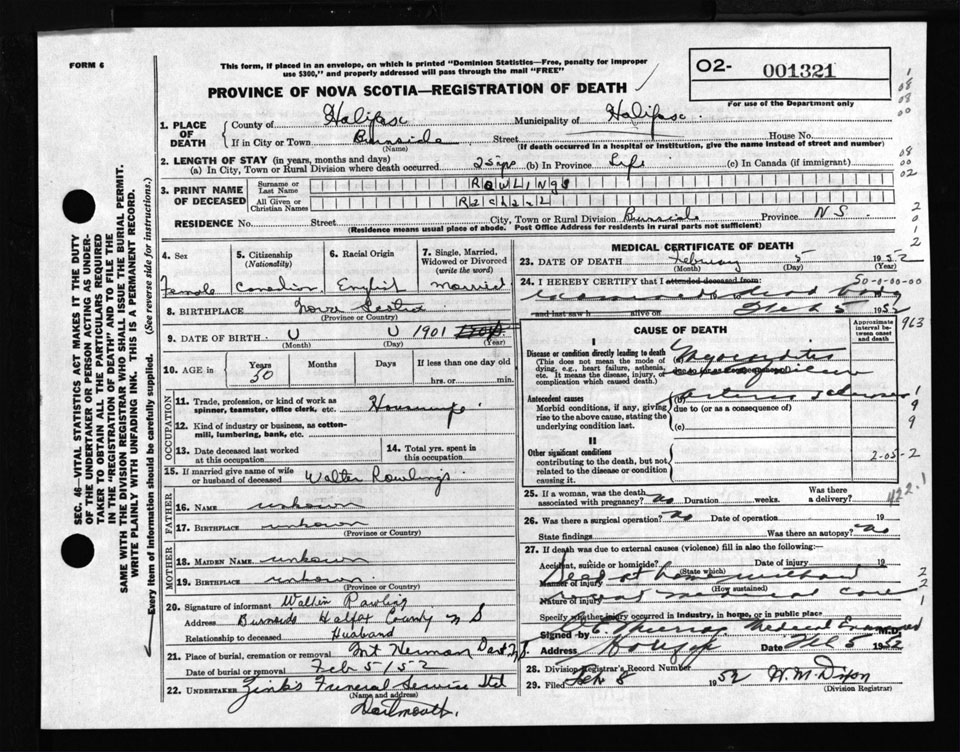 FORM 6
This form, if placed in an envelope, on which is printed "Dominion Statistics—Free, penalty for improper
use $300," and properly addressed will pass through the mail "FREE"
O2- 001321
For use of the Department only
PROVINCE OF NOVA SCOTIA—REGISTRATION OF DEATH
1. PLACE OF DEATH
County of Halifax Municipality of Halifax
If in City or Town Burnside Street House No.
(Name) (If death occurred in a hospital or institution, give the name instead of street and number)
2. LENGTH OF STAY (in years, months and days)
(a) In City, Town or Rural Division where death occurred 25 yrs (b) In Province Life (c) In Canada (if immigrant)
3. PRINT NAME OF DECEASED
Surname or Last Name RAWLINGS
All Given or Christian Names
RESIDENCE No. Street City, Town or Rural Division Burnside Province N S.
(Residence means usual place of abode. Post Office Address for residents in rural parts not sufficient)
4. Sex Female
5. Citizenship (Nationality) Canadian
6. Racial Origin English
7. Single, Married, Widowed or Divorced (write the word) Married
8. BIRTHPLACE Nova Scotia
(Province or County)
9. DATE OF BIRTH U U 1901
(Month) (Day) (Year)
10. AGE in Years 50 Months Days If less than one day old
hrs. or min.
OCCUPATION
11. Trade, profession, or kind of work as
spinner, teamster, office clerk, etc. Housewife
12. Kind of industry or business, as cotton-
mill, lumbering, bank, etc.
13. Date deceased last worked
at this occupation
14. Total yrs. spent in
this occupation
15. If married give name of wife
or husband of deceased Walter Rowlings
FATHER
16. NAME unkown
17. BIRTHPLACE unkown
(Province or Country)
MOTHER
18. MAIDEN NAME unkown
19. BIRTHPLACE unkown
(Province or Country)
20. Signature of informant Walter Rawling
Address Burnside Halfax County N S
Relationship to deceased Husband
21. Place of burial, cremation or removal Mt Herman
Date of burial or removal Feb 5/52
22. UNDERTAKER Zink's Funeral Service Ltd
(Name and address)
Dartmouth.
MEDICAL CERTIFICATE OF DEATH
23. DATE OF DEATH February 5 1952
(Month) (Day) (Year)
24. I HEREBY CERTIFY that I attended deceased from:
50-0-00-00
and last saw h alive on Feb 5 1952
963
CAUSE OF DEATH
Approximate interval between onset and death
I
Disease or condition directly leading to death
(This does not mean the mode of
dying, e.g., heart failure, asthenia,
etc. It means the disease, injury, or
complication which caused death.)
Myocarditis
Antecedent causes
Morbid conditions, if any, giving
rise to the above cause, stating the
underlying condition last.
due to (or as a consequence of)
(c)
II
Other significant conditions
contributing to the death, but not
related to the disease or condition
causing it.
2-05-2
422.1
25. If a woman, was the death
associated with pregnancy? No Duration weeks. Was there a delivery?
26. Was there a surgical operation? No Date of operation 19
State findings Was there an autopsy? No
27. If death was due to external causes (violence) fill in also the following:—
Accident, suicide or homicide? Date of injury 19
(State which)
Dead at home without
Manner of injury
(How sustained)
Nature of injury medical care
Specify whether injury occurred in industry, in home, or in public place
Signed by Medical Examiner M.D.
Address Date Feb 5 1952
28. Division Registrar's Record Number
29. Filed Feb 8 1952 W. M. Dixon
(Division Registrar)
SEC. 46—VITAL STATISTICS ACT MAKES IT THE DUTY
OF THE UNDERTAKER OR PERSON ACTING AS UNDER-
TAKER TO OBTAIN ALL THE PARTICULARS REQUIRED
IN THE "REGISTRATION OF DEATH" AND TO FILE THE
SAME WITH THE DIVISION REGISTRAR WHO SHALL ISSUE THE BURIAL PERMIT.
WRITE PLAINLY WITH UNFADING INK. THIS IS A PERMANENT RECORD.
Every item of information should be carefully supplied. (See reverse side for instructions.)